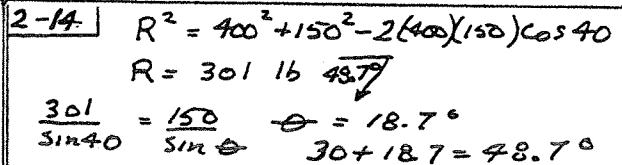 2-14 R² = 400² + 150² - 2(400)(150) cos 40
R = 301 lb 48.7°
301/sin40 = 150/sin θ θ = 18.7°
30 + 18.7 = 48.7°